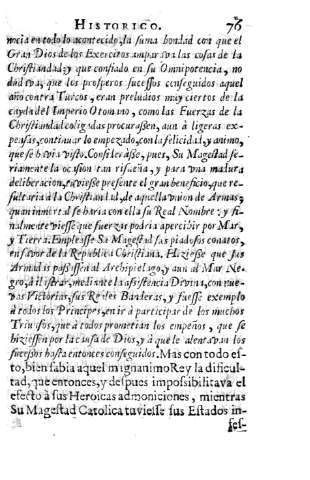 HISTORICO. 76
nocia en todo lo acontecido, la suma bondad con que el
Gran Dios de los Exercitos amparava las cosas de la
Christiandad; y que confiado en su Omnipotencia, no
dudava, que los prosperos sucessos conseguidos aquel
año contra Turcos, eran preludios muy ciertos de la
cayda del Imperio Otomano, como las Fuerzas de la
Christiandad coligadas procurassen, aun à ligeras ex-
pensas, continuar lo empezado, con la felicidad, y animo,
que se havia visto. Considerasse, pues, Su Magestad se-
riamente la ocasion tan risueña, y para una madura
deliberacion, tuviesse presente el gran beneficio, que re-
sultaria à la Christiandad, de aquella union de Armas;
quan inmortal se haria con ella su Real Nombre: y fi-
nalmente viesse que fuerzas podria apercibir por Mar,
y Tierra. Empleasse Su Magestad sus piadosos conatos,
en favor de la Republica Christiana. Hiziesse que sus
Armadas passassen al Archipielago, y aun al Mar Ne-
gro, à ilustrar, mediante la asistencia Divina, con nue-
vas Victorias, sus Reales Banderas, y fuesse exemplo
à todos los Principes, en ir à participar de los muchos
Triunfos, que à todos prometian los empeños, que se
hiziessen por la causa de Dios, y à que le alentavan los
sucessos hasta entonces conseguidos. Mas con todo es-
to, bien sabia aquel magnanimo Rey la dificul-
tad, que entonces, y despues impossibilitava el
efecto à sus Heroicas admoniciones, mientras
Su Magestad Catolica tuviesse sus Estados in-
fes-